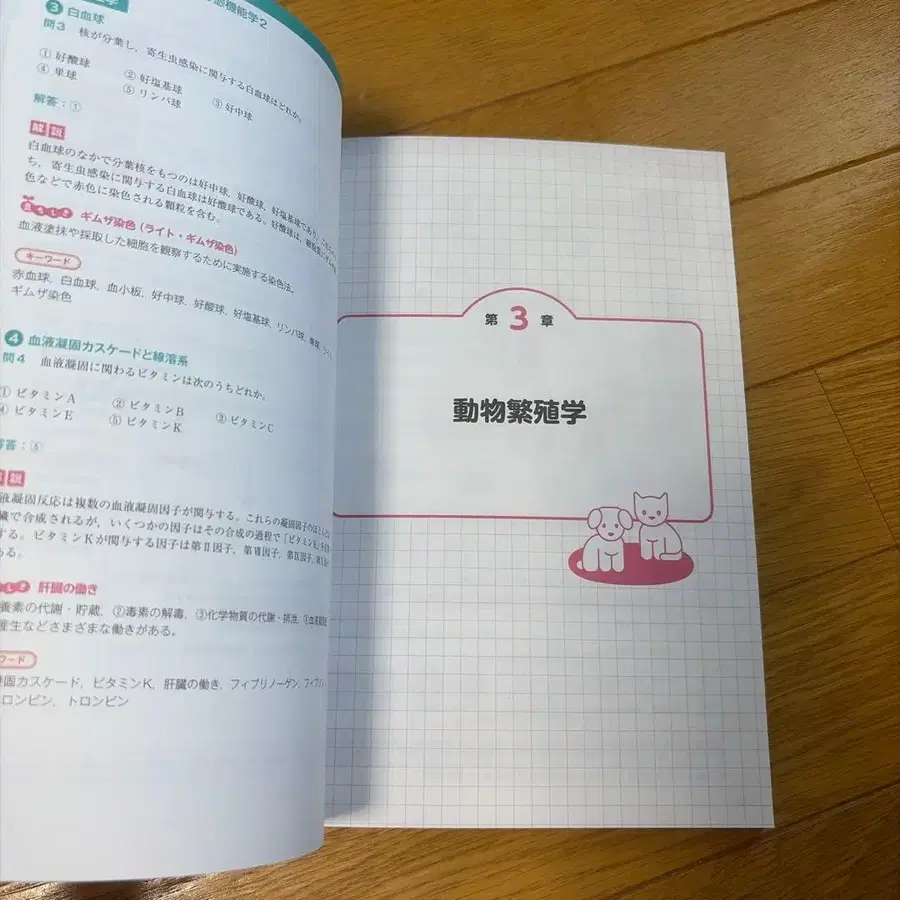 機能学2
③ 白血球
問3 核が分葉し，寄生虫感染に関与する白血球はどれか。
① 好酸球 ② 好塩基球 ③ 好中球
④ 単球 ⑤ リンパ球
解答：①
解説
白血球のなかで分葉核をもつのは好中球，好酸球，好塩基球であり，
ち，寄生虫感染に関与する白血球は好酸球である。好酸球は，
色などで赤色に染色される顆粒を含む。
ギムザ染色（ライト・ギムザ染色）
血液塗抹や採取した細胞を観察するために実施する染色法。
キーワード
赤血球，白血球，血小板，好中球，好酸球，好塩基球，リンパ球，単球，ライト
ギムザ染色
④ 血液凝固カスケードと線溶系
問4 血液凝固に関わるビタミンは次のうちどれか。
① ビタミンA ② ビタミンB ③ ビタミンC
④ ビタミンE ⑤ ビタミンK
解答：⑤
説
液凝固反応は複数の血液凝固因子が関与する。これらの凝固因子のほとんど
臓で合成されるが，いくつかの因子はその合成の過程で「ビタミンK」を
する。ビタミンKが関与する因子は第Ⅱ因子，第Ⅶ因子，第Ⅸ因子，第Ⅹ
ある。
肝臓の働き
養素の代謝・貯蔵，②毒素の解毒，③化学物質の代謝・排泄，
産生などさまざまな働きがある。
ワード
固カスケード，ビタミンK，肝臓の働き，フィブリノーゲン，フィブリン
ロンビン，トロンビン
第3章
動物繁殖学